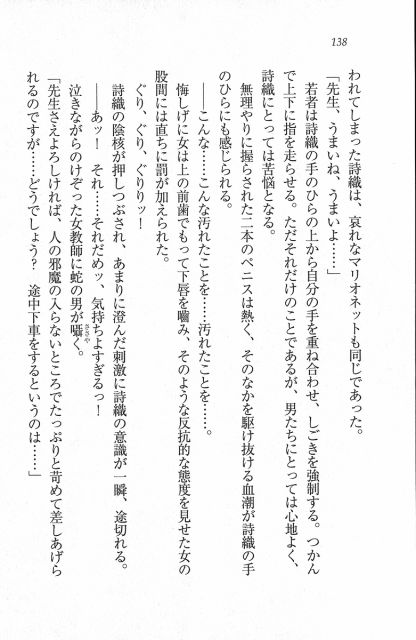 138
われてしまった詩織は、哀れなマリオネットも同じであった。
「先生、うまいね、うまいよ……」
若者は詩織の手のひらの上から自分の手を重ね合わせ、しごきを強制する。つかん
で上下に指を走らせる。ただそれだけのことであるが、男たちにとっては心地よく、
詩織にとっては苦悩となる。
無理やりに握らされた二本のペニスは熱く、そのなかを駆け抜ける血潮が詩織の手
のひらにも感じられる。
——こんな……こんな汚れたことを……汚れたことを……。
悔しげに女は上の前歯でもって下唇を嚙み、そのような反抗的な態度を見せた女の
股間には直ちに罰が加えられた。
ぐり、ぐり、ぐりりッ！
詩織の陰核が押しつぶされ、あまりに澄んだ刺激に詩織の意識が一瞬、途切れる。
——あッ！　それ……それだめッ、気持ちよすぎるっ！
泣きながらのけぞった女教師に蛇の男が囁く。
ささや
「先生さえよろしければ、人の邪魔の入らないところでたっぷりと苛めて差しあげら
れるのですが……どうでしょう？　途中下車をするというのは……」